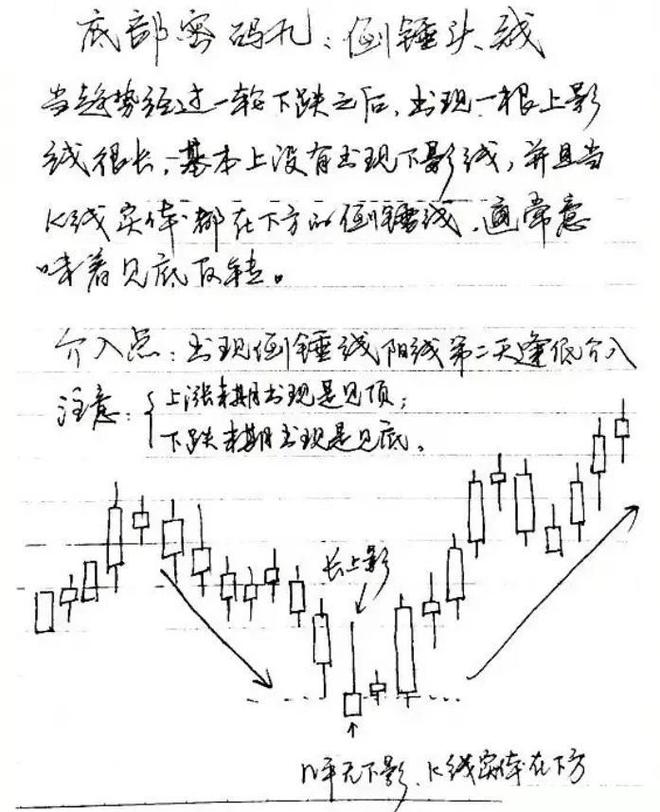 底部密码九:倒锤头线
当趋势经过一轮下跌之后,出现一根上影
线很长,基本上没有出现下影线,并且当
K线实体都在下方的倒锤线,通常意
味着见底反转。
介入点:出现倒锤线阳线第二天逢低介入
注意:
上涨末期出现是见顶;
下跌末期出现是见底。
长上影
几乎无下影、K线实体在下方